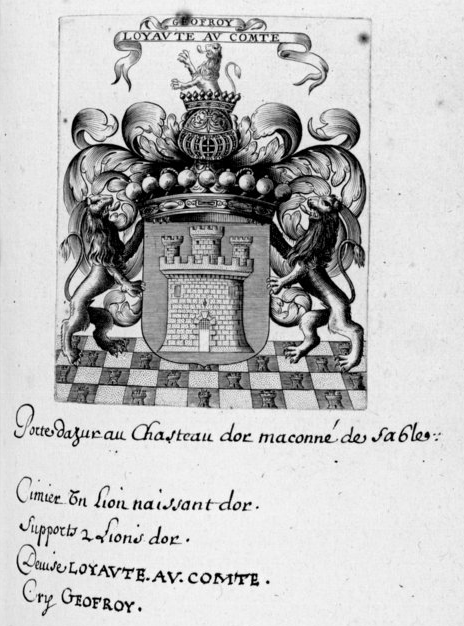 GEOFROY
LOYAVTE AV COMTE
Porte dazur au Chasteau dor maconné de sable
Cimier Vn Lion naissant dor.
Supports 2 Lions dor.
Deuise LOYAVTE. AV. COMTE.
Cry GEOFROY.